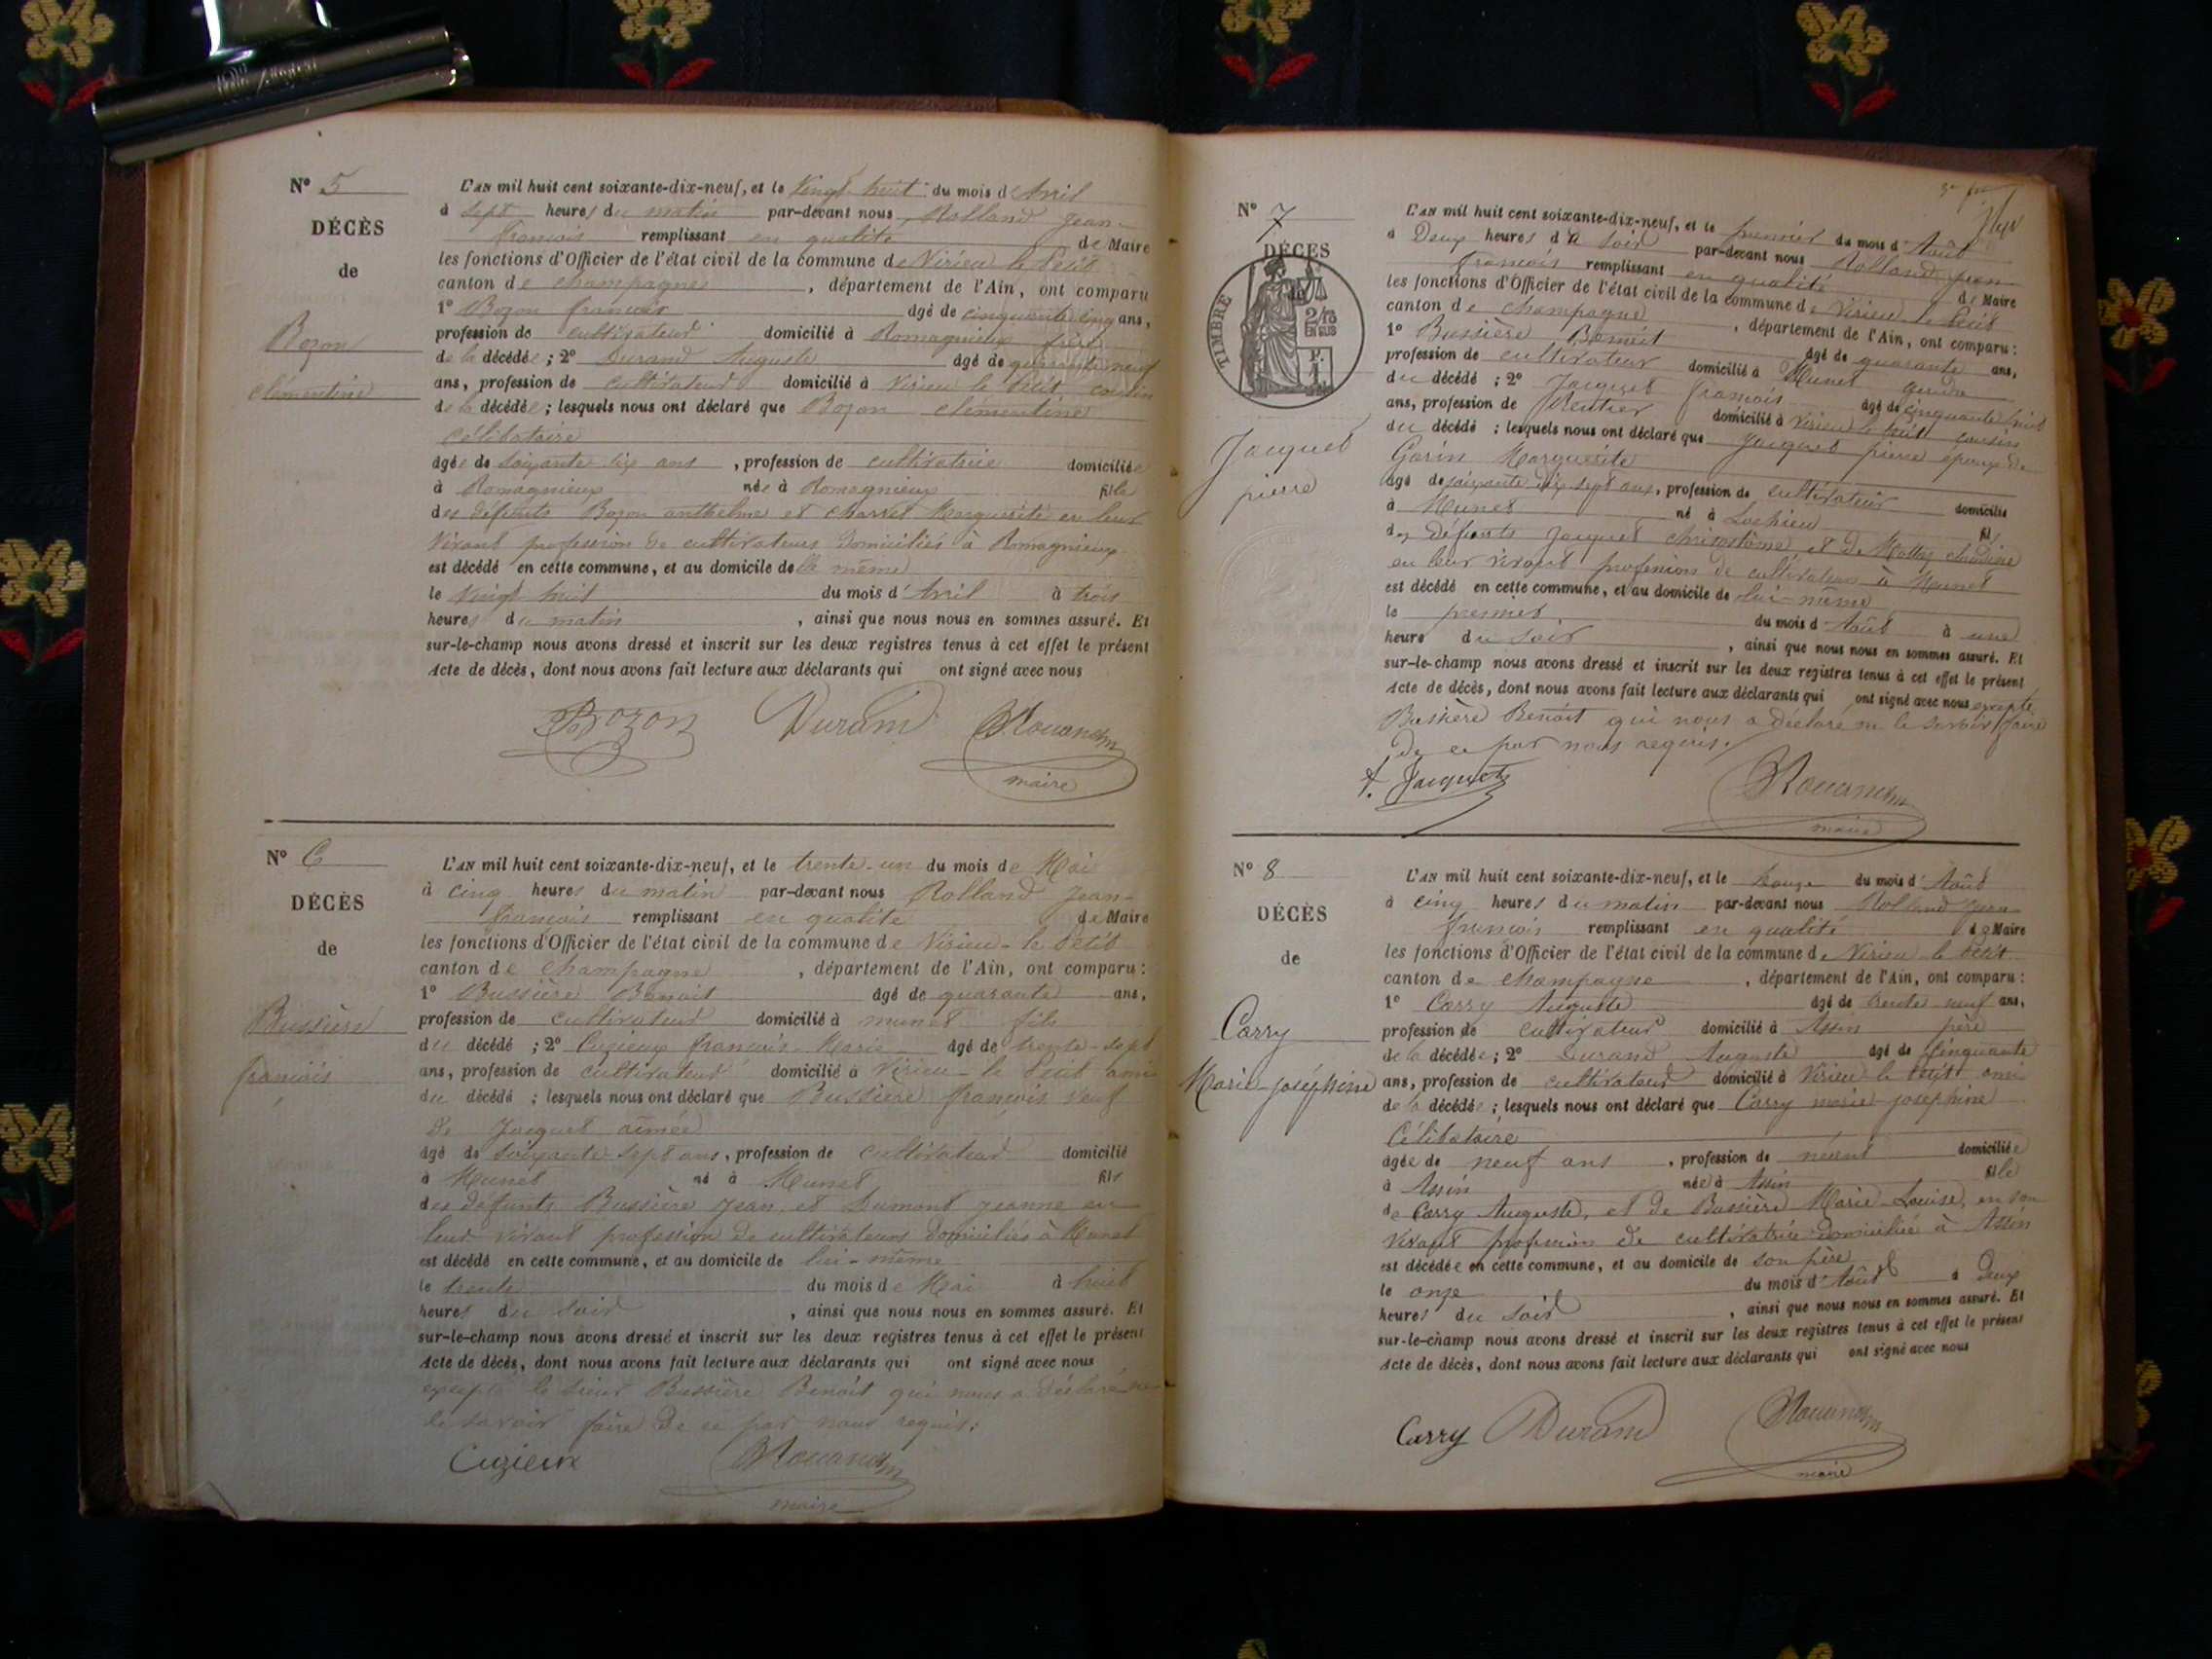 N° 5
DÉCÈS
de
Bozon
clémentine
L'AN mil huit cent soixante-dix-neuf, et le Vingt huit du mois d'Avril
à sept heures du matin par-devant nous Rolland Jean-
françois remplissant en qualité de Maire
les fonctions d'Officier de l'état civil de la commune de Virieu le Petit
canton de Champagne , département de l'Ain, ont comparu
1° Bozon françois âgé de cinquante cinq ans,
profession de cultivateur domicilié à Romagnieux frère
de la décédée ; 2° Durand Auguste âgé de quarante neuf
ans, profession de cultivateur domicilié à Virieu le Petit cousin
de la décédée ; lesquels nous ont déclaré que Bozon clémentine
célibataire
âgée de soixante dix ans , profession de cultivatrice domiciliée
à Romagnieux née à Romagnieux fille
des défunts Bozon anthelme et Charvet Marguerite en leur
Vivant profession de cultivateurs domiciliés à Romagnieux
est décédé en cette commune, et au domicile de elle même
le vingt huit du mois d'Avril à trois
heures du matin , ainsi que nous nous en sommes assuré. Et
sur-le-champ nous avons dressé et inscrit sur les deux registres tenus à cet effet le présent
Acte de décès, dont nous avons fait lecture aux déclarants qui ont signé avec nous
Bozon Durand
maire
N° 6
DÉCÈS
de
Bussière
françois
L'AN mil huit cent soixante-dix-neuf, et le trente-un du mois de Mai
à cinq heures du matin par-devant nous Rolland Jean-
françois remplissant en qualité de Maire
les fonctions d'Officier de l'état civil de la commune de Virieu-le Petit
canton de Champagne , département de l'Ain, ont comparu :
1° Bussière Benoit âgé de quarante ans,
profession de cultivateur domicilié à munet fils
du décédé ; 2° Cuzieux françois-Marie âgé de trente-sept
ans, profession de cultivateur domicilié à Virieu-le Petit ami
du décédé ; lesquels nous ont déclaré que Bussière françois veuf
de Jacquet aimée
âgé de soixante sept ans, profession de cultivateur domicilié
à Munet né à Munet fils
des défunts Bussière Jean et Dumont Jeanne en
leur vivant profession de cultivateurs domiciliés à Munet
est décédé en cette commune, et au domicile de lui-même
le trente du mois de Mai à huit
heures du soir , ainsi que nous nous en sommes assuré. Et
sur-le-champ nous avons dressé et inscrit sur les deux registres tenus à cet effet le présent
Acte de décès, dont nous avons fait lecture aux déclarants qui ont signé avec nous
excepté le sieur Bussière Benoit qui nous a déclaré ne
le savoir faire de ce par nous requis.
Cuzieux
maire
N° 7
DÉCÈS
TIMBRE
2/10
EN SUS
Jacquet
pierre
L'AN mil huit cent soixante-dix-neuf, et le premier du mois d'Août
à Deux heures du soir par-devant nous Rolland jean
françois remplissant en qualité de Maire
les fonctions d'Officier de l'état civil de la commune de Virieu-le Petit
canton de Champagne , département de l'Ain, ont comparu :
1° Bussière Benoit âgé de quarante ans,
profession de cultivateur domicilié à Munet gendre
du décédé ; 2° Jacquet françois âgé de cinquante huit
ans, profession de Rentier domicilié à Virieu le Petit cousin
du décédé ; lesquels nous ont déclaré que Jacquet pierre époux de
Gorin Marguerite
âgé de soixante dix sept ans, profession de cultivateur domicilié
à Munet né à Lochieu fils
des défunts Jacquet chrisostôme et de Mottaz claudine
en leur vivant profession de cultivateurs à Munet
est décédé en cette commune, et au domicile de lui-même
le premier du mois d'Août à une
heure du soir , ainsi que nous nous en sommes assuré. Et
sur-le-champ nous avons dressé et inscrit sur les deux registres tenus à cet effet le présent
Acte de décès, dont nous avons fait lecture aux déclarants qui ont signé avec nous excepté
Bussière Benoit qui nous a déclaré ne le savoir faire
de ce par nous requis.
f. Jacquet
maire
N° 8
DÉCÈS
de
Carry
Marie-joséphine
L'AN mil huit cent soixante-dix-neuf, et le Douze du mois d'Août
à cinq heures du matin par-devant nous Rolland jean
françois remplissant en qualité de Maire
les fonctions d'Officier de l'état civil de la commune de Virieu le Petit
canton de Champagne , département de l'Ain, ont comparu :
1° Carry Auguste âgé de trente-neuf ans,
profession de cultivateur domicilié à Assin père
de la décédée ; 2° Durand Auguste âgé de cinquante
ans, profession de cultivateur domicilié à Virieu le Petit ami
de la décédée ; lesquels nous ont déclaré que Carry marie-joséphine
Célibataire
âgée de neuf ans , profession de néant domiciliée
à Assin née à Assin fille
de Carry Auguste, et de Bussière Marie-Louise, en son
vivant profession de cultivatrice domiciliée à Assin
est décédée en cette commune, et au domicile de son père
le onze du mois d'Août à Deux
heures du soir , ainsi que nous nous en sommes assuré. Et
sur-le-champ nous avons dressé et inscrit sur les deux registres tenus à cet effet le présent
Acte de décès, dont nous avons fait lecture aux déclarants qui ont signé avec nous
Carry Durand
maire